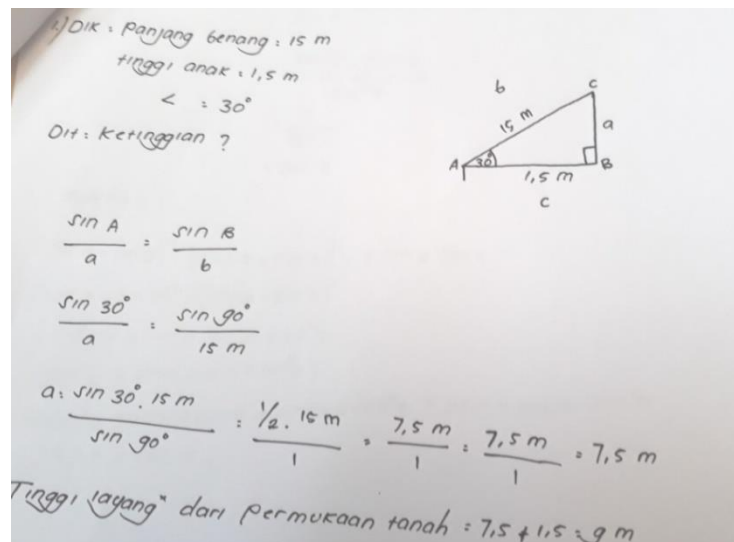 1.) DIK : Panjang benang : 15 m
tinggi anak : 1,5 m
< : 30°
Dit : Ketinggian ?
b
C
15 m
a
A
30°
B
1,5 m
c
sin A / a = sin B / b
sin 30° / a = sin 90° / 15 m
a = sin 30° . 15 m / sin 90° = 1/2 . 15 m / 1 = 7,5 m / 1 = 7,5 m / 1 = 7,5 m
Tinggi layang" dari permukaan tanah = 7,5 + 1,5 = 9 m